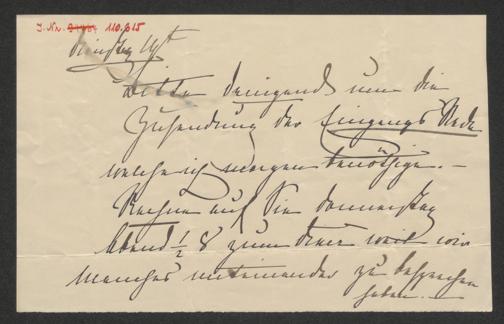 I. Nr. 110.615
Dienstag
Bitte dringend um die
Zusendung der Eingangs Rede
welche ich morgen benötige. –
Rechne auf Sie Donnerstag
Abend ½ 8 zum Thee weil wir
Manches miteinander zu besprechen
haben. –